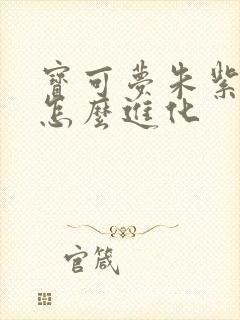 寶可夢朱紫
怎麼進化
官箴